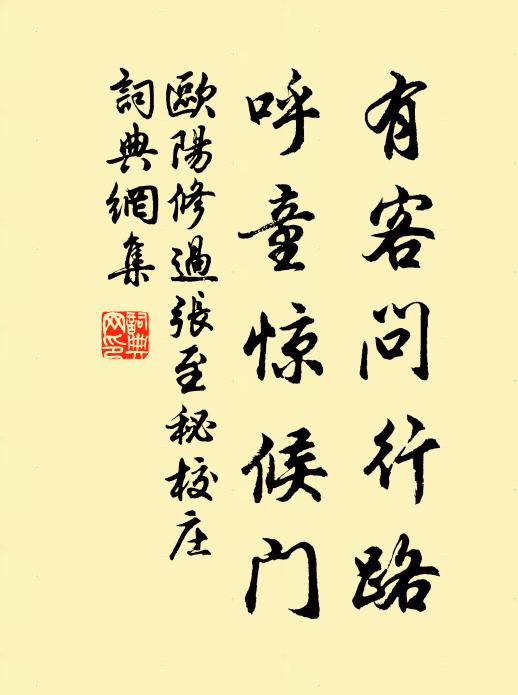 有客问行路
呼童惊候门
歐陽修過張至秘校庄
詞典網集
詞典网印